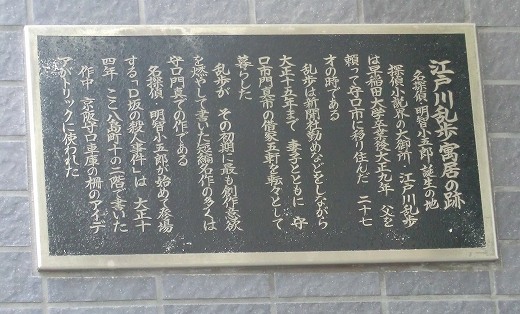 江戸川乱歩寓居の跡
名探偵 明智小五郎 誕生の地
探偵小説界の大御所 江戸川乱歩
は早稲田大学卒業後大正九年 父を
頼って守口市に移り住んだ 二十七
才の時である
乱歩は新聞社勤めなどをしながら
大正十五年まで 妻子とともに 守
口市門真市の借家五軒を転々として
暮らした
乱歩が その初期に最も創作意欲
を燃やして書いた短編名作の多くは
守口門真での作である
名探偵 明智小五郎が始めて登場
する「D坂の殺人事件」は 大正十
四年 ここ八島町十の二階で書いた
作中 京阪守口車庫の柵のアイデ
アがトリックに使われた